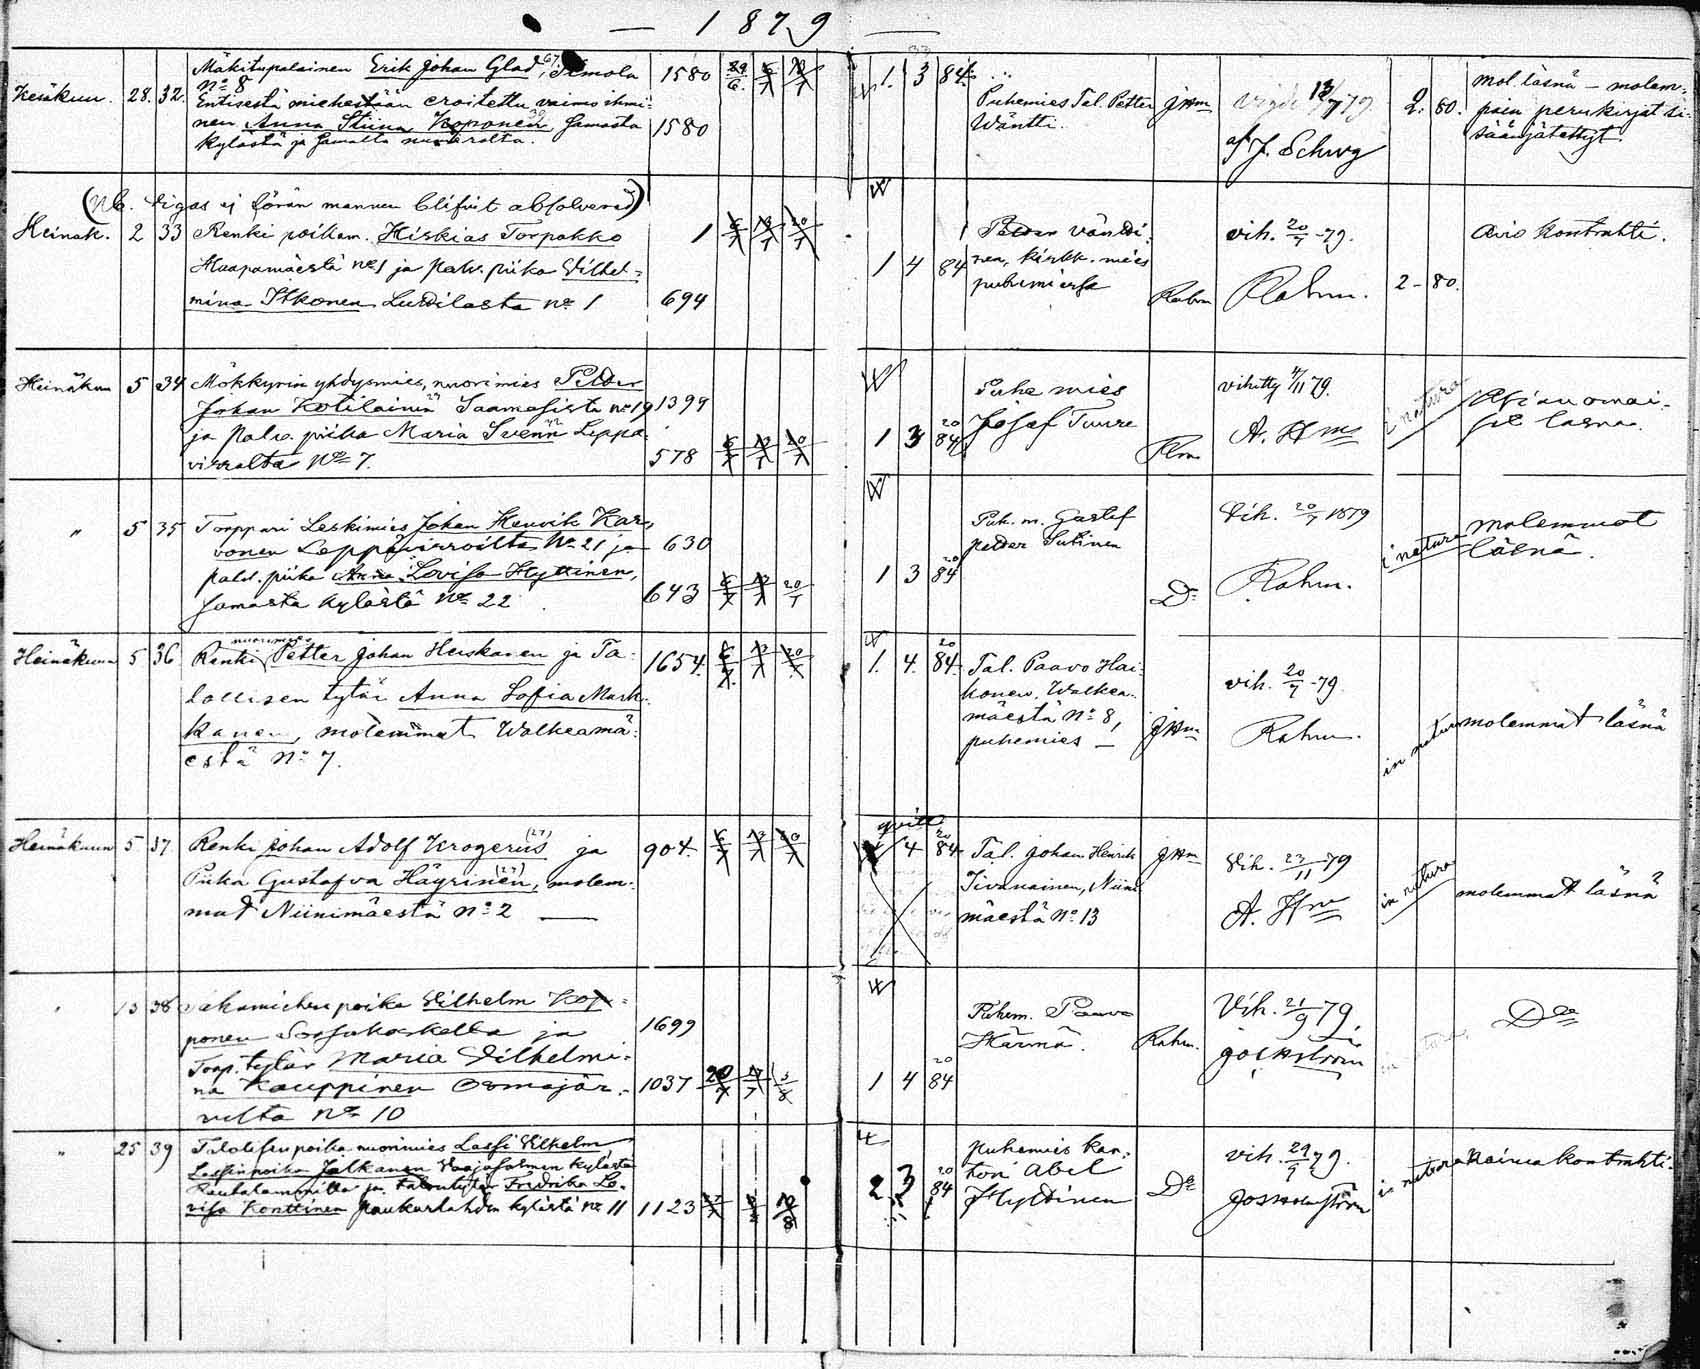 — 1879 —
Kesäkuu. 28. 32. Mäkitupalainen Erik Johan Glad, 67, Timola 1580
No 8
Entisestä miehestään eroitettu vaimo ihmi-
nen Anna Stiina Koponen samasta 1580
kylästä ja samalta numerolta.
1. 3 84. Puhemies Tal. Petter
Wäntti.
13/7 79.
af J. Schwg
2. 80. mol. läsnä – molem-
pain perukirjat si-
säänjätettyt.
(Nb. Vigas ej förän mannen blifvit absolverad)
Heinäk. 2 33 Renki poikam. Hiskias Torpakko 1
Haapamäestä No 1 ja palv. piika Vilhel-
mina Itkonen Luttilasta No 1 694
1 4 84 Petter Vändi-
nen, kirkk. mies
puhemiessä
Rahm
vih. 20/7 -79.
Rahm.
2 - 80.
Avio Kontrahti.
Heinäkuu 5 34 Mökkyrin yhdysmies, nuorimies Petter
Johan Kotilainen Saamaisista No 19 1399
ja palv. piika Maria Svenn Leppä-
virralta No 7. 578
1 3 20/84 Puhe mies
Josef Tuure
vihitty 4/11 79.
A. Hm
in natura
läsnä.
" 5 35 Torppari Leskimies Johan Henrik Kar-
vonen Leppävirroilta No 21 ja 630
palv. piika Anna Lovisa Hyttinen,
samasta kylästä No 22 643
1 3 20/84 Puh. m. Gustaf
Petter Sutinen
Do
Vih. 20/7 1879
Rahm.
in natura
molemmat
läsnä.
Heinäkuu 5 36 Renki nuorimies Petter Johan Heiskanen ja Ta- 1654.
lollisen tytär Anna Sofia Mark-
kanen, molemmat Walkeamä-
estä No 7.
1. 4. 20/84. Tal. Paavo Hai-
konen, Walkea-
mäestä No 8,
puhemies —
JHm
vih. 20/7 -79.
Rahm.
in natura
molemmat läsnä
Heinäkuun 5 37 Renki Johan Adolf Krogerius (27) ja 904.
Piika Gustafva Häyrinen (27), molem-
mat Niinimäestä No 2 —
qvitt
4 20/84 Tal. Johan Henrik
Tivanainen, Niini-
mäestä No 13
JHm
Vih. 23/11 -79
A. Hm
in natura
molemmat läsnä
" 13 38 Vilhelm Kop-
ponen Sorsakoskella ja 1699
Torp. tytär Maria Vilhelmi-
na Kauppinen Osmajär- 1037
veltä No 10
1 4 20/84
Puhem. Paavo
Härmä.
Rahm.
Vih. 21/9 79.
in natura
Do
" 25 39 Talollisen poika nuorimies Lassi Vilhelm
Lassinpoika Jalkanen Vaajasalmen kylästä
Rautalammilta ja talontytär Fredrika Lo-
visa Konttinen Paukarlahden kylästä No 11 1123
2 3 20/84 puhemies kan-
tori Abel
Hyttinen
Do
vih. 21/9 79.
in natura
Naima kontrahti.